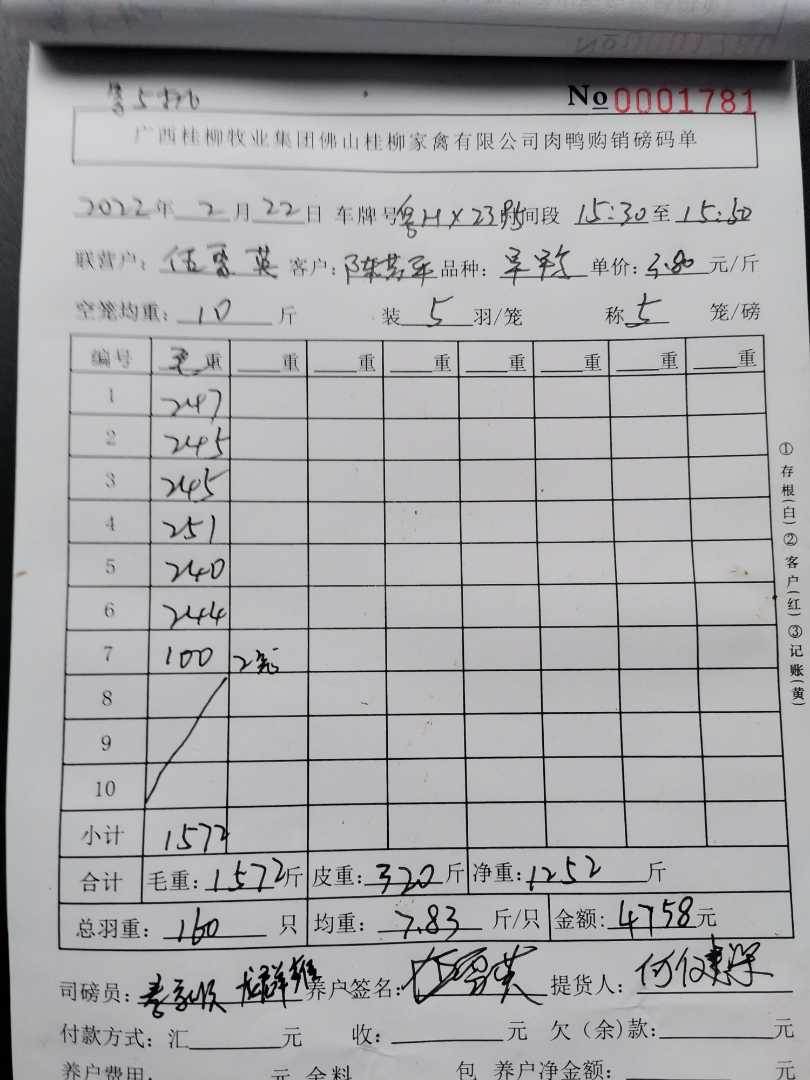 No 0001781
广西桂柳牧业集团佛山桂柳家禽有限公司肉鸭购销磅码单
2022年 2月22日 车牌号粤HX2395时间段 15:30至15:50
联营户: 伍雪英 客户: 陈 品种: 单价: 3.80元/斤
空笼均重: 10 斤 装 5 羽/笼 称 5 笼/磅
编号 毛重 重 重 重 重 重 重 重
1 247
2 245
3 245
4 251
5 240
6 244
7 100 2笼
8
9
10
小计 1572
合计 毛重: 1572斤 皮重: 320斤 净重: 1252 斤
总羽重: 160 只 均重: 7.83 斤/只 金额: 4758元
司磅员: 养户签名: 伍雪英 提货人: 何
付款方式: 汇 元 收: 元 欠(余)款: 元
养户费用: 元 余料 包 养户净金额: 元
①存根(白)②客户(红)③记账(黄)